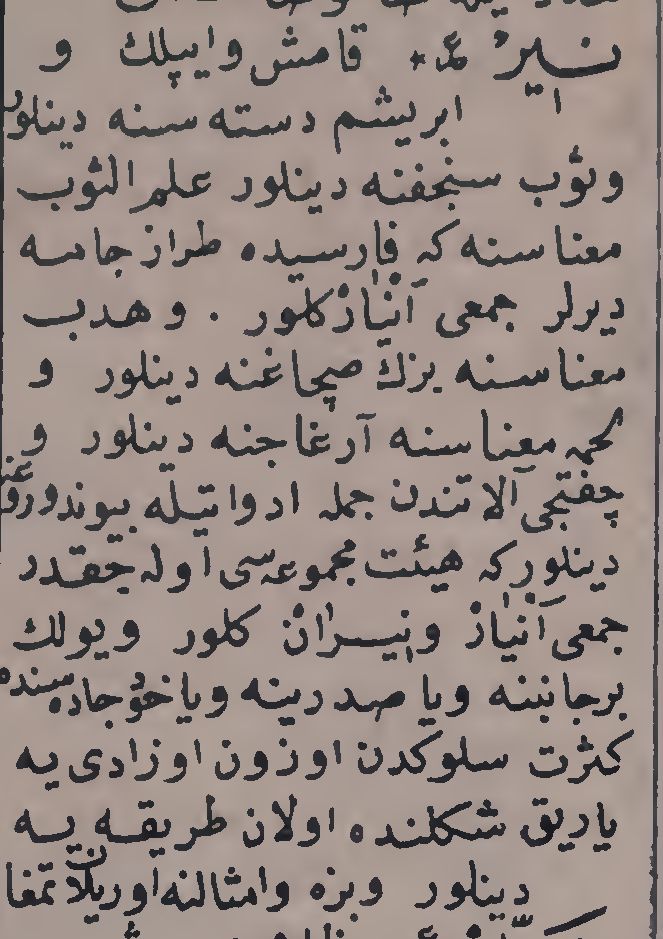 نير ع٠ قامش وايپلك و
ابريشم دسته سنه دينلور
وثوب سنجفنه دينلور علم الثوب
معناسنه كه فارسيده طراز جامه
ديرلر جمعى آنيار كلور . وهدب
معناسنه بزك صچاغنه دينلور و
لحمه معناسنه آرغاجنه دينلور و
چفتجى آلاتندن جمله ادواتيله بيوندورق
دينلور كه هيئت مجموعه سى اوله جقدر
جمعى آنيار ونيران كلور ويولك
برجانبنه ويا صدرينه ويا جاده سنده
كثرت سلوكدن اوزون اوزادى يه
ياريق شكلنده اولان طريقه يه
دينلور وبزه وامثالنه اوريلان تمغا